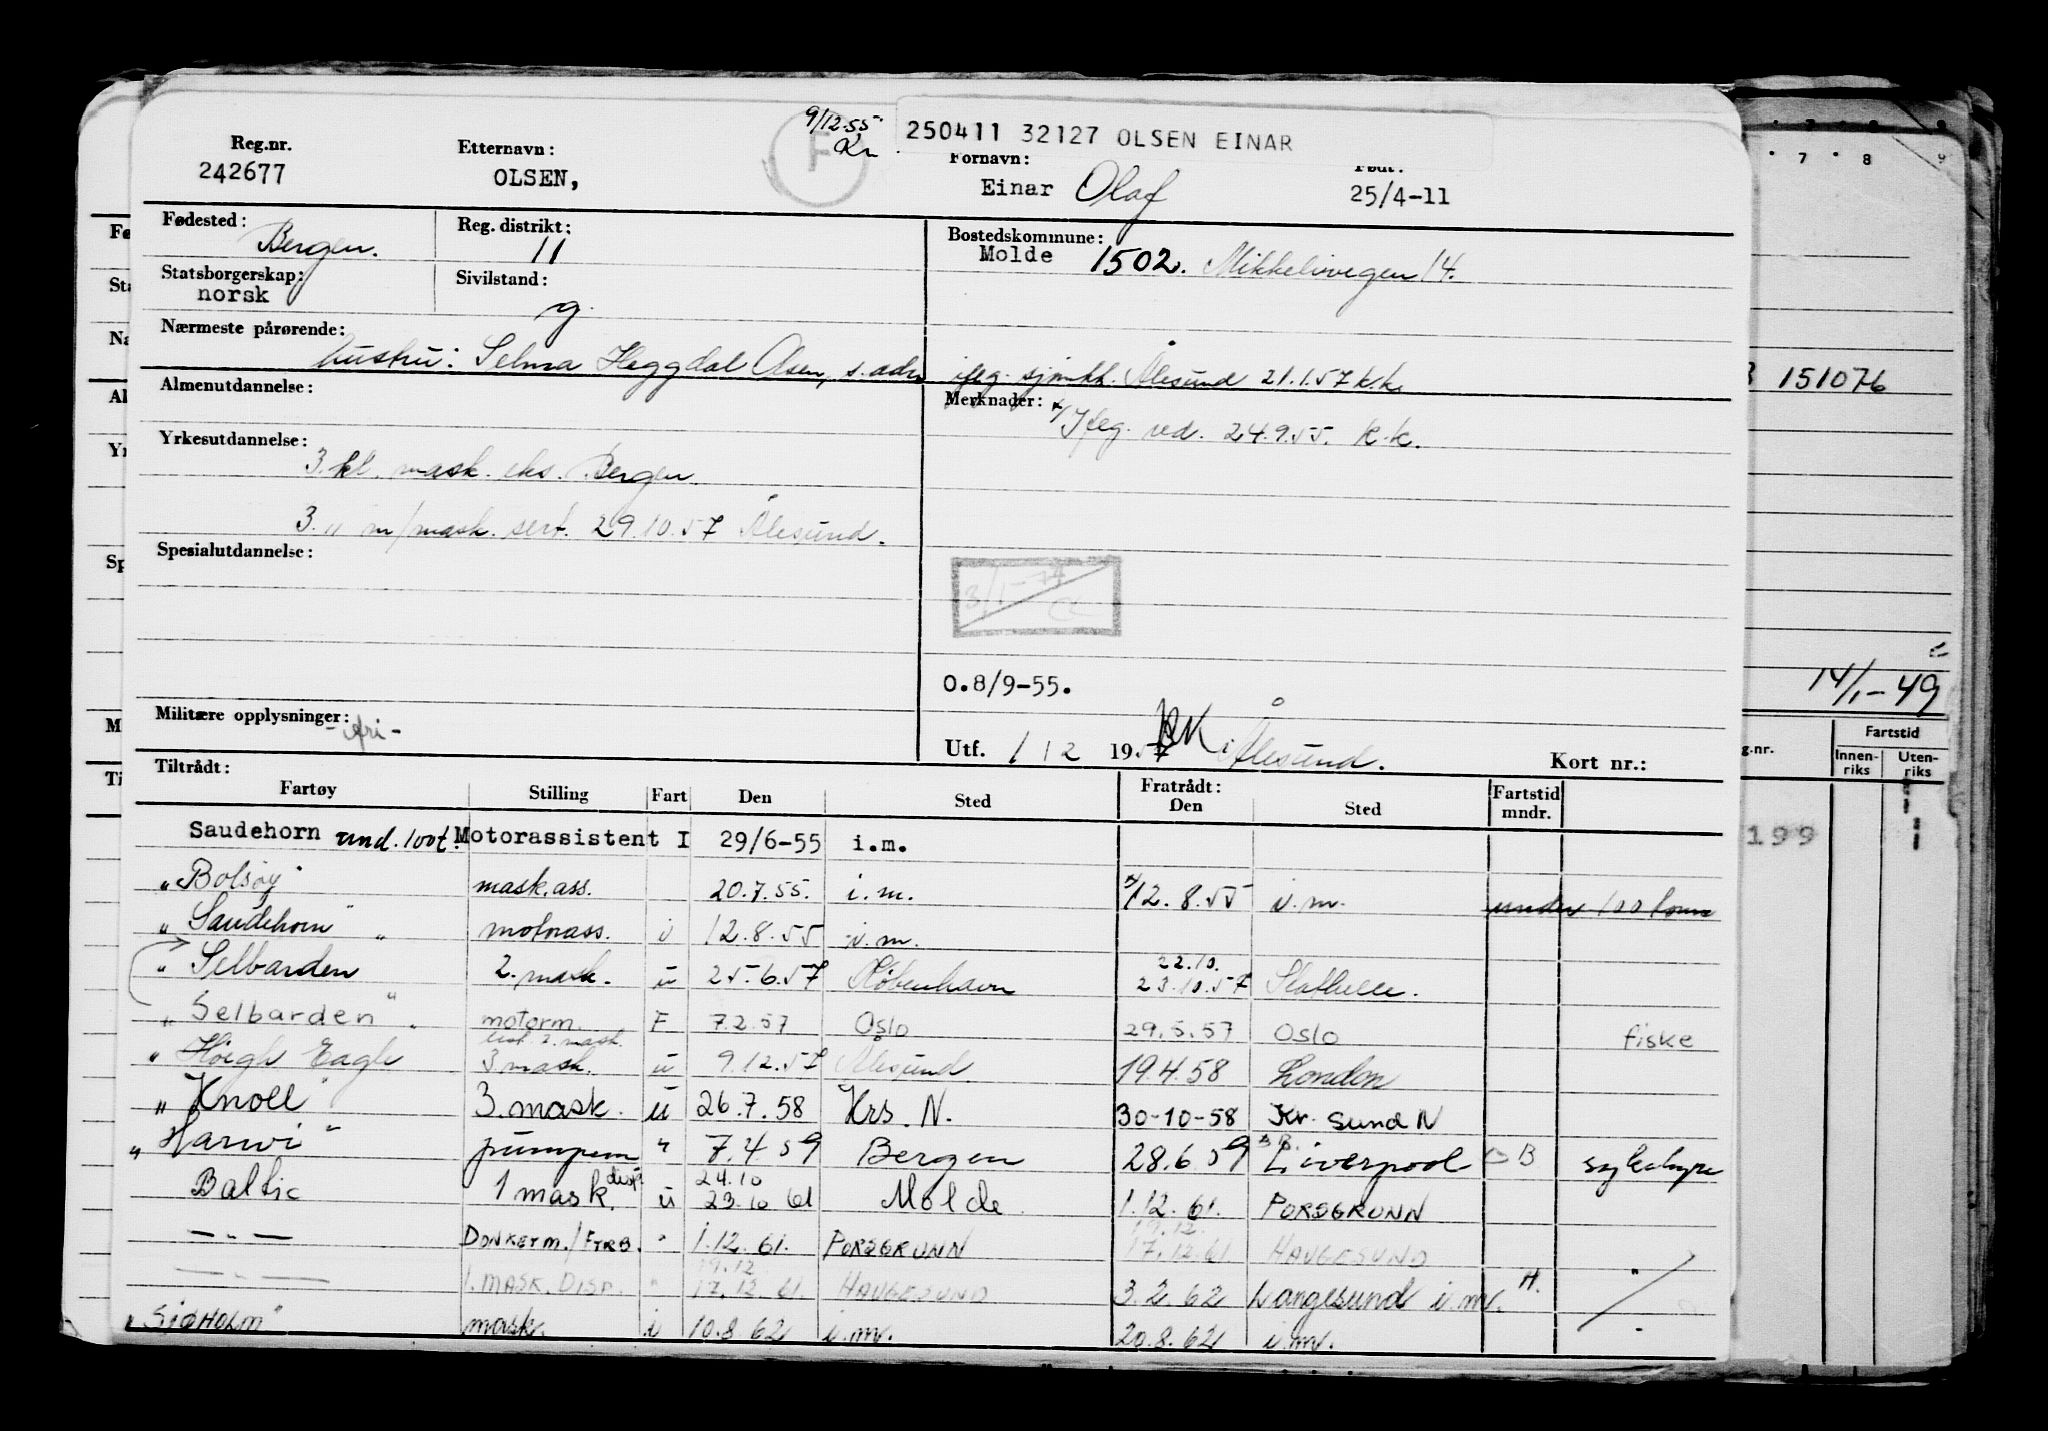 9/12.55
Kr.
250411 32127 OLSEN EINAR
Reg.nr. Etternavn: F Fornavn: Født:
242677 OLSEN, Einar Olaf 25/4-11
Fødested: Bergen. Reg. distrikt: 11 Bostedskommune:
Molde 1502. Mikkelivegen 14.
Statsborgerskap: norsk Sivilstand: g.
Nærmeste pårørende:
hustru: Selma Heggdal Olsen, s. adr. ifeg. sjmkk. Ålesund 21.1.57 k.k.
Almenutdannelse: Merknader: x/ Ifeg. ved. 24.9.55. k.k.
Yrkesutdannelse:
3. kl. mask. eks. Bergen.
3. " m/mask. sert. 29.10.57 Ålesund.
Spesialutdannelse:
3/1-74
O.8/9-55.
Militære opplysninger: -fri-
Utf. 1/12 1957 i Ålesund. Kort nr.:
Tiltrådt: Fratrådt:
Fartøy Stilling Fart Den Sted Den Sted Fartstid mndr.
Saudehorn und. 100t. Motorassistent I 29/6-55 i.m.
"Bolsøy" mask.ass. 20.7.55. i.m. x/12.8.55 i.m. under 100 tonn
"Saudehorn" " motorass. i 12.8.55 i.m.
"Selbarden 2. mask. u 25.6.57 København 22.10. 23.10.57 Stathelle.
"Selbarden" " motorm. F 7.2.57 Oslo 29.5.57 Oslo fiske
"Höegh Eagle 3 mask. u 9.12.57 Ålesund 19.4.58 London
"Knoll" 3. mask. u 26.7.58 Krs. N. 30-10-58 Kr. sund N
"Harwi" pumpem " 7.4.59 Bergen 28.6.59 Liverpool B sykehyre
Baltic 1 mask. disp. u 24.10 23.10 61 Molde 1.12.61. PORSGRUNN
— " — DONKEYM./FYRB. " 1.12.61. PORSGRUNN 19.12. 17.12.61. HAUGESUND
— " — 1. MASK. DISP. " 19.12 17.12.61. HAUGESUND 3.2.62 Langesund i.m. H. "
"SJØHOLM" mask. i 10.8.62 i.m. 20.8.62 i.m.
7 8 9
151076
14/1-49
g.nr. Fartstid
Innen-riks Uten-riks
199